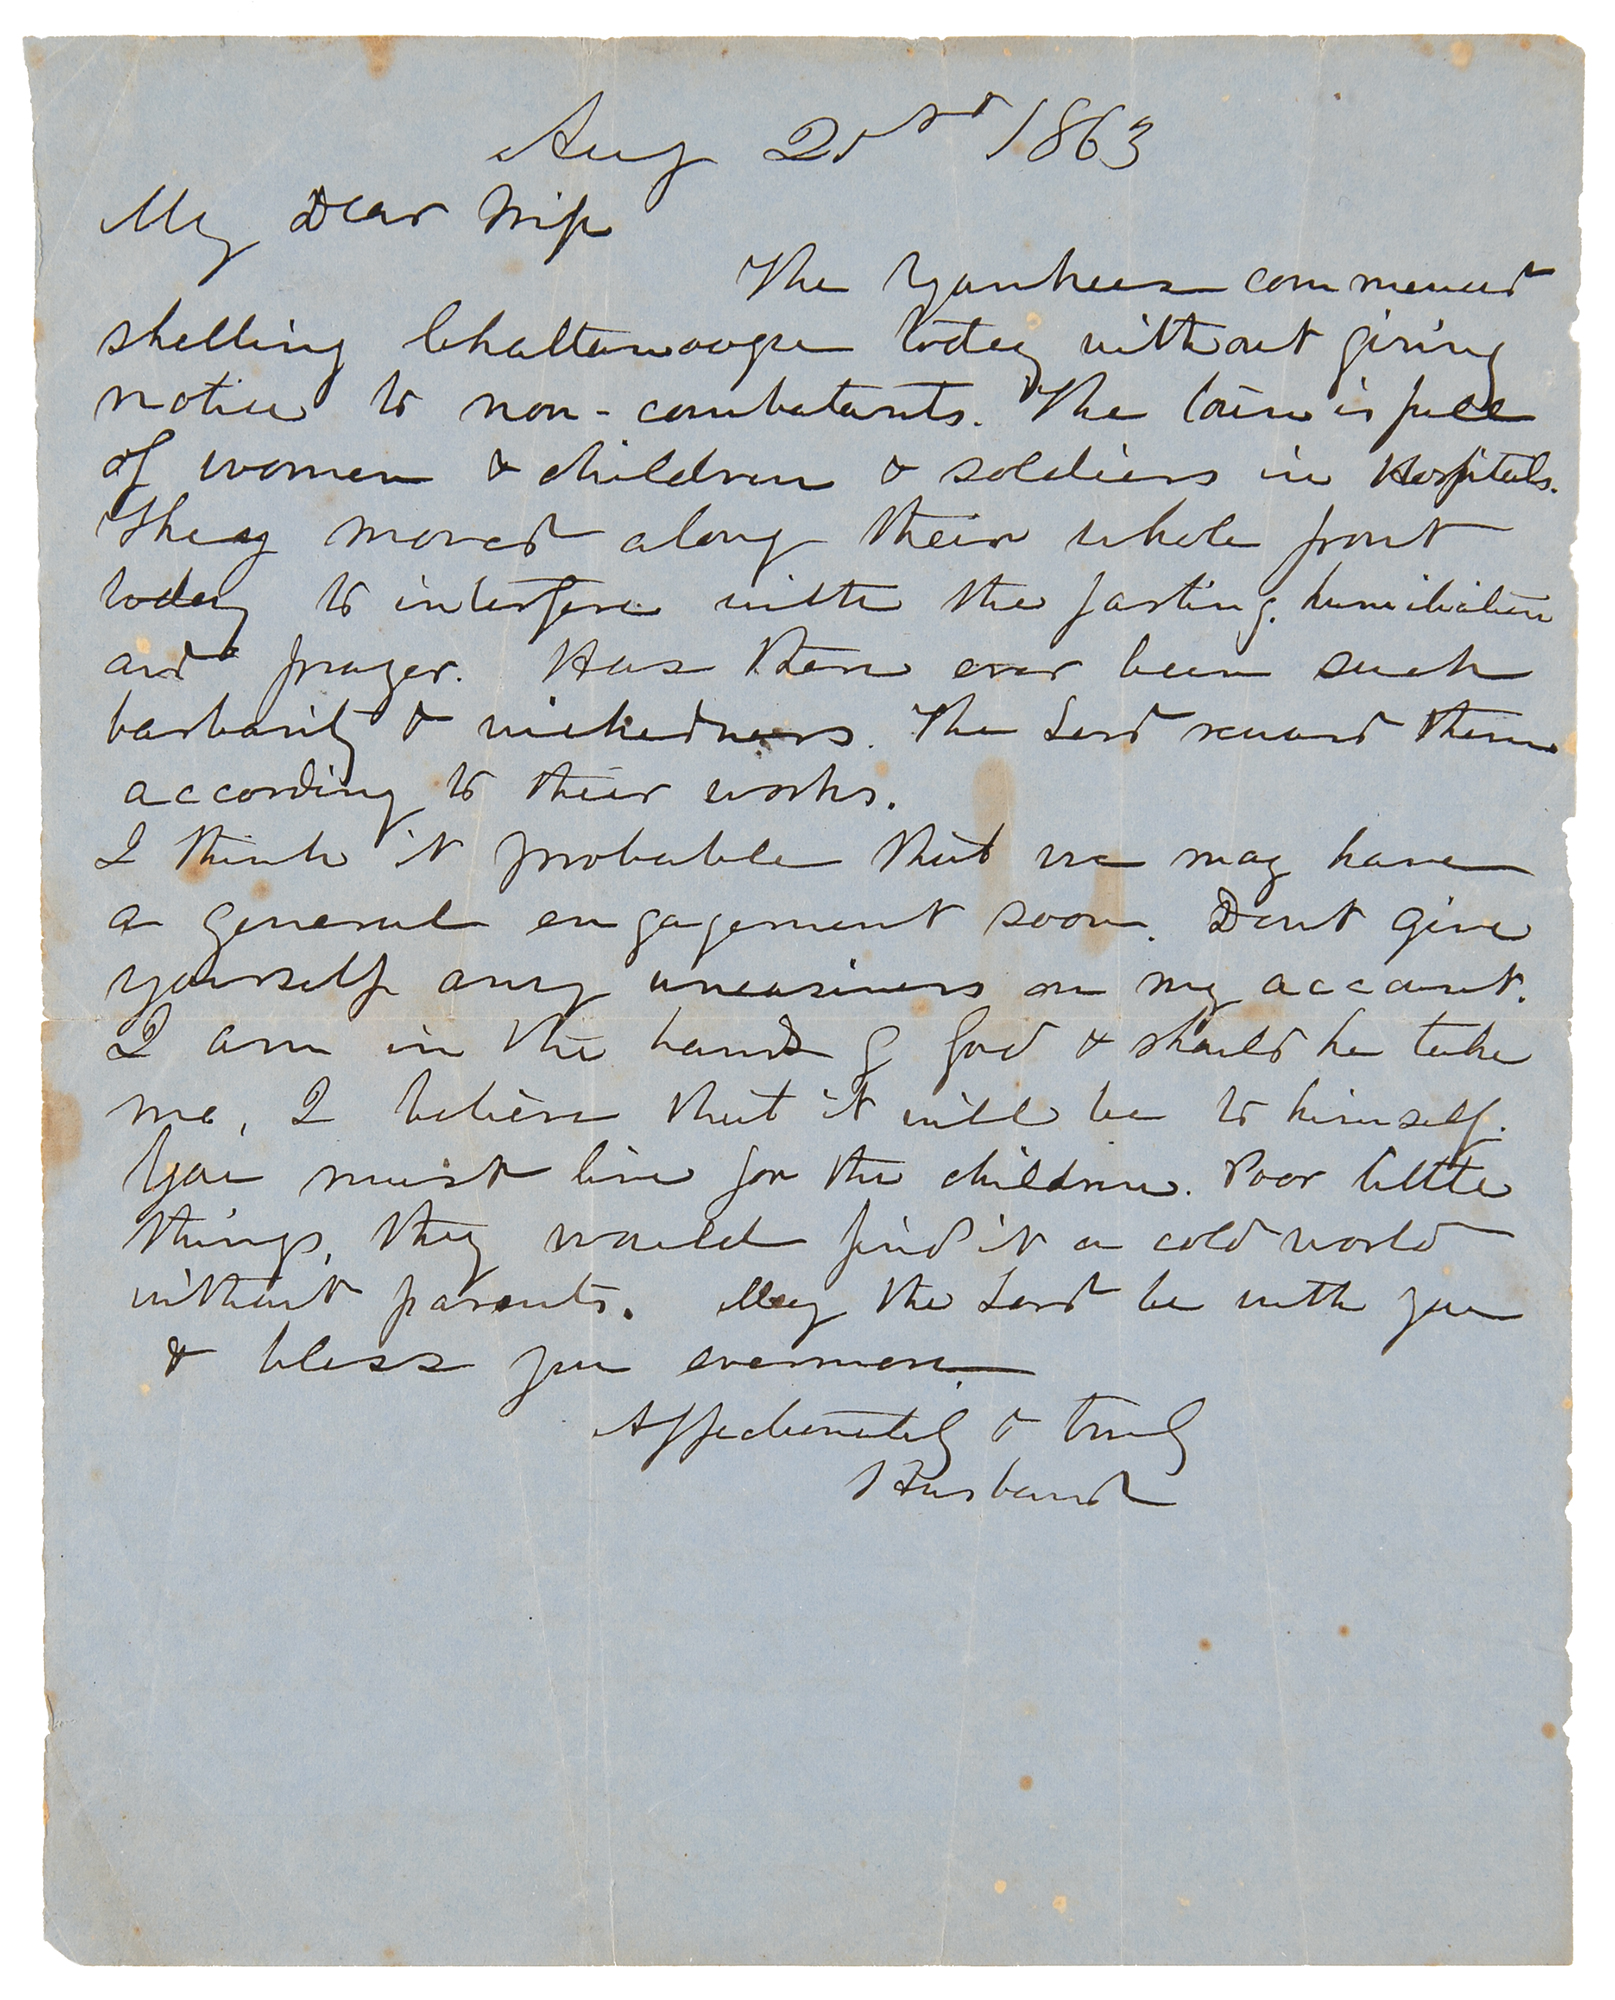 Aug 2 1863
My Dear Wife
The Yankees commenced
shelling Chattanooga today without giving
notice to non-combatants. The town is full
of women & children & soldiers in Hospitals.
They moved along their whole front
today to interfere with the fasting, humiliation
and prayer. Has there ever been such
barbarity & wickedness. The Lord reward them
according to their works.
I think it probable that we may have
a general engagement soon. Dont give
yourself any uneasiness on my account.
I am in the hands of God & should he take
me, I believe that it will be to himself.
You must live for the children. Poor little
things, they would find it a cold world
without parents. May the Lord be with you
& bless you evermore.
Affectionately & truly
Husband